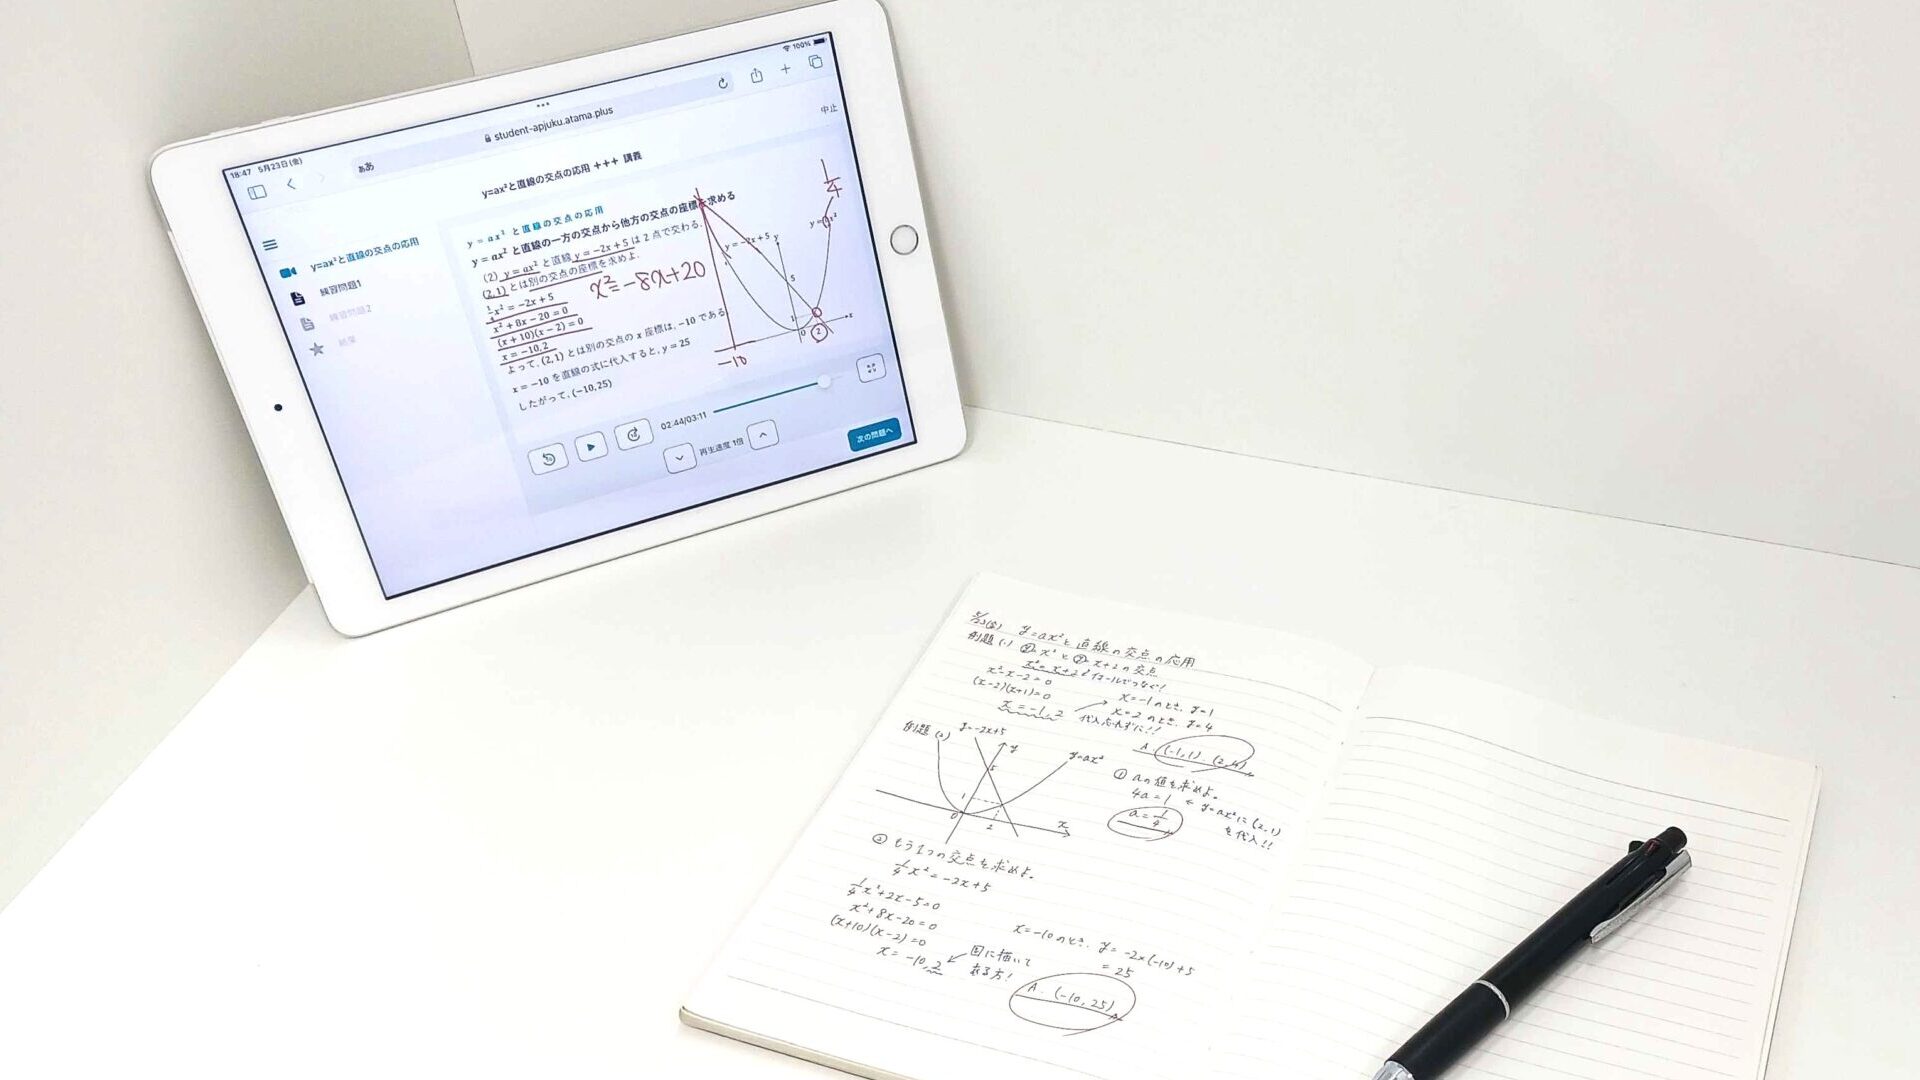 18:47 5月23日(金)
100%
ああ
student-apjuku.atama.plus
中止
y=ax²と直線の交点の応用 +++ 講義
y=ax²と直線の交点の応用
練習問題1
練習問題2
結果
y = ax² と直線の交点の応用
y = ax² と直線の一方の交点から他方の交点の座標を求める
(2) y = ax² と直線 y = −2x + 5 は 2 点で交わる.
(2,1) とは別の交点の座標を求めよ.
x² = −8x+20
1/4 x² = −2x + 5
x² + 8x − 20 = 0
(x + 10)(x − 2) = 0
x = −10, 2
よって, (2,1) とは別の交点の x 座標は, −10 である
x = −10 を直線の式に代入すると, y = 25
したがって, (−10, 25)
y = −2x + 5
y
1/4
5
1
O
2
x
−10
02:44/03:11
再生速度 1倍
次の問題へ
5/23(金) y=ax²と直線の交点の応用
例題(1) y=x²とy=x+2の交点
x²=x+2 イコールでつなぐ!
x²-x-2=0
(x-2)(x+1)=0
x=-1, 2
x=-1のとき, y=1
x=2のとき, y=4
代入忘れずに!!
A. (-1,1), (2,4)
例題(2)
y=-2x+5
y
y=ax²
5
1
0
2
x
① aの値を求めよ。
4a=1 ← y=ax²に(2,1)
を代入!!
a=1/4
② もう1つの交点を求めよ。
1/4x²=-2x+5
1/4x²+2x-5=0
x²+8x-20=0
(x+10)(x-2)=0
x=-10, 2
図に描いて
ある方!
x=-10のとき, y=-2×(-10)+5
=25
A. (-10, 25)